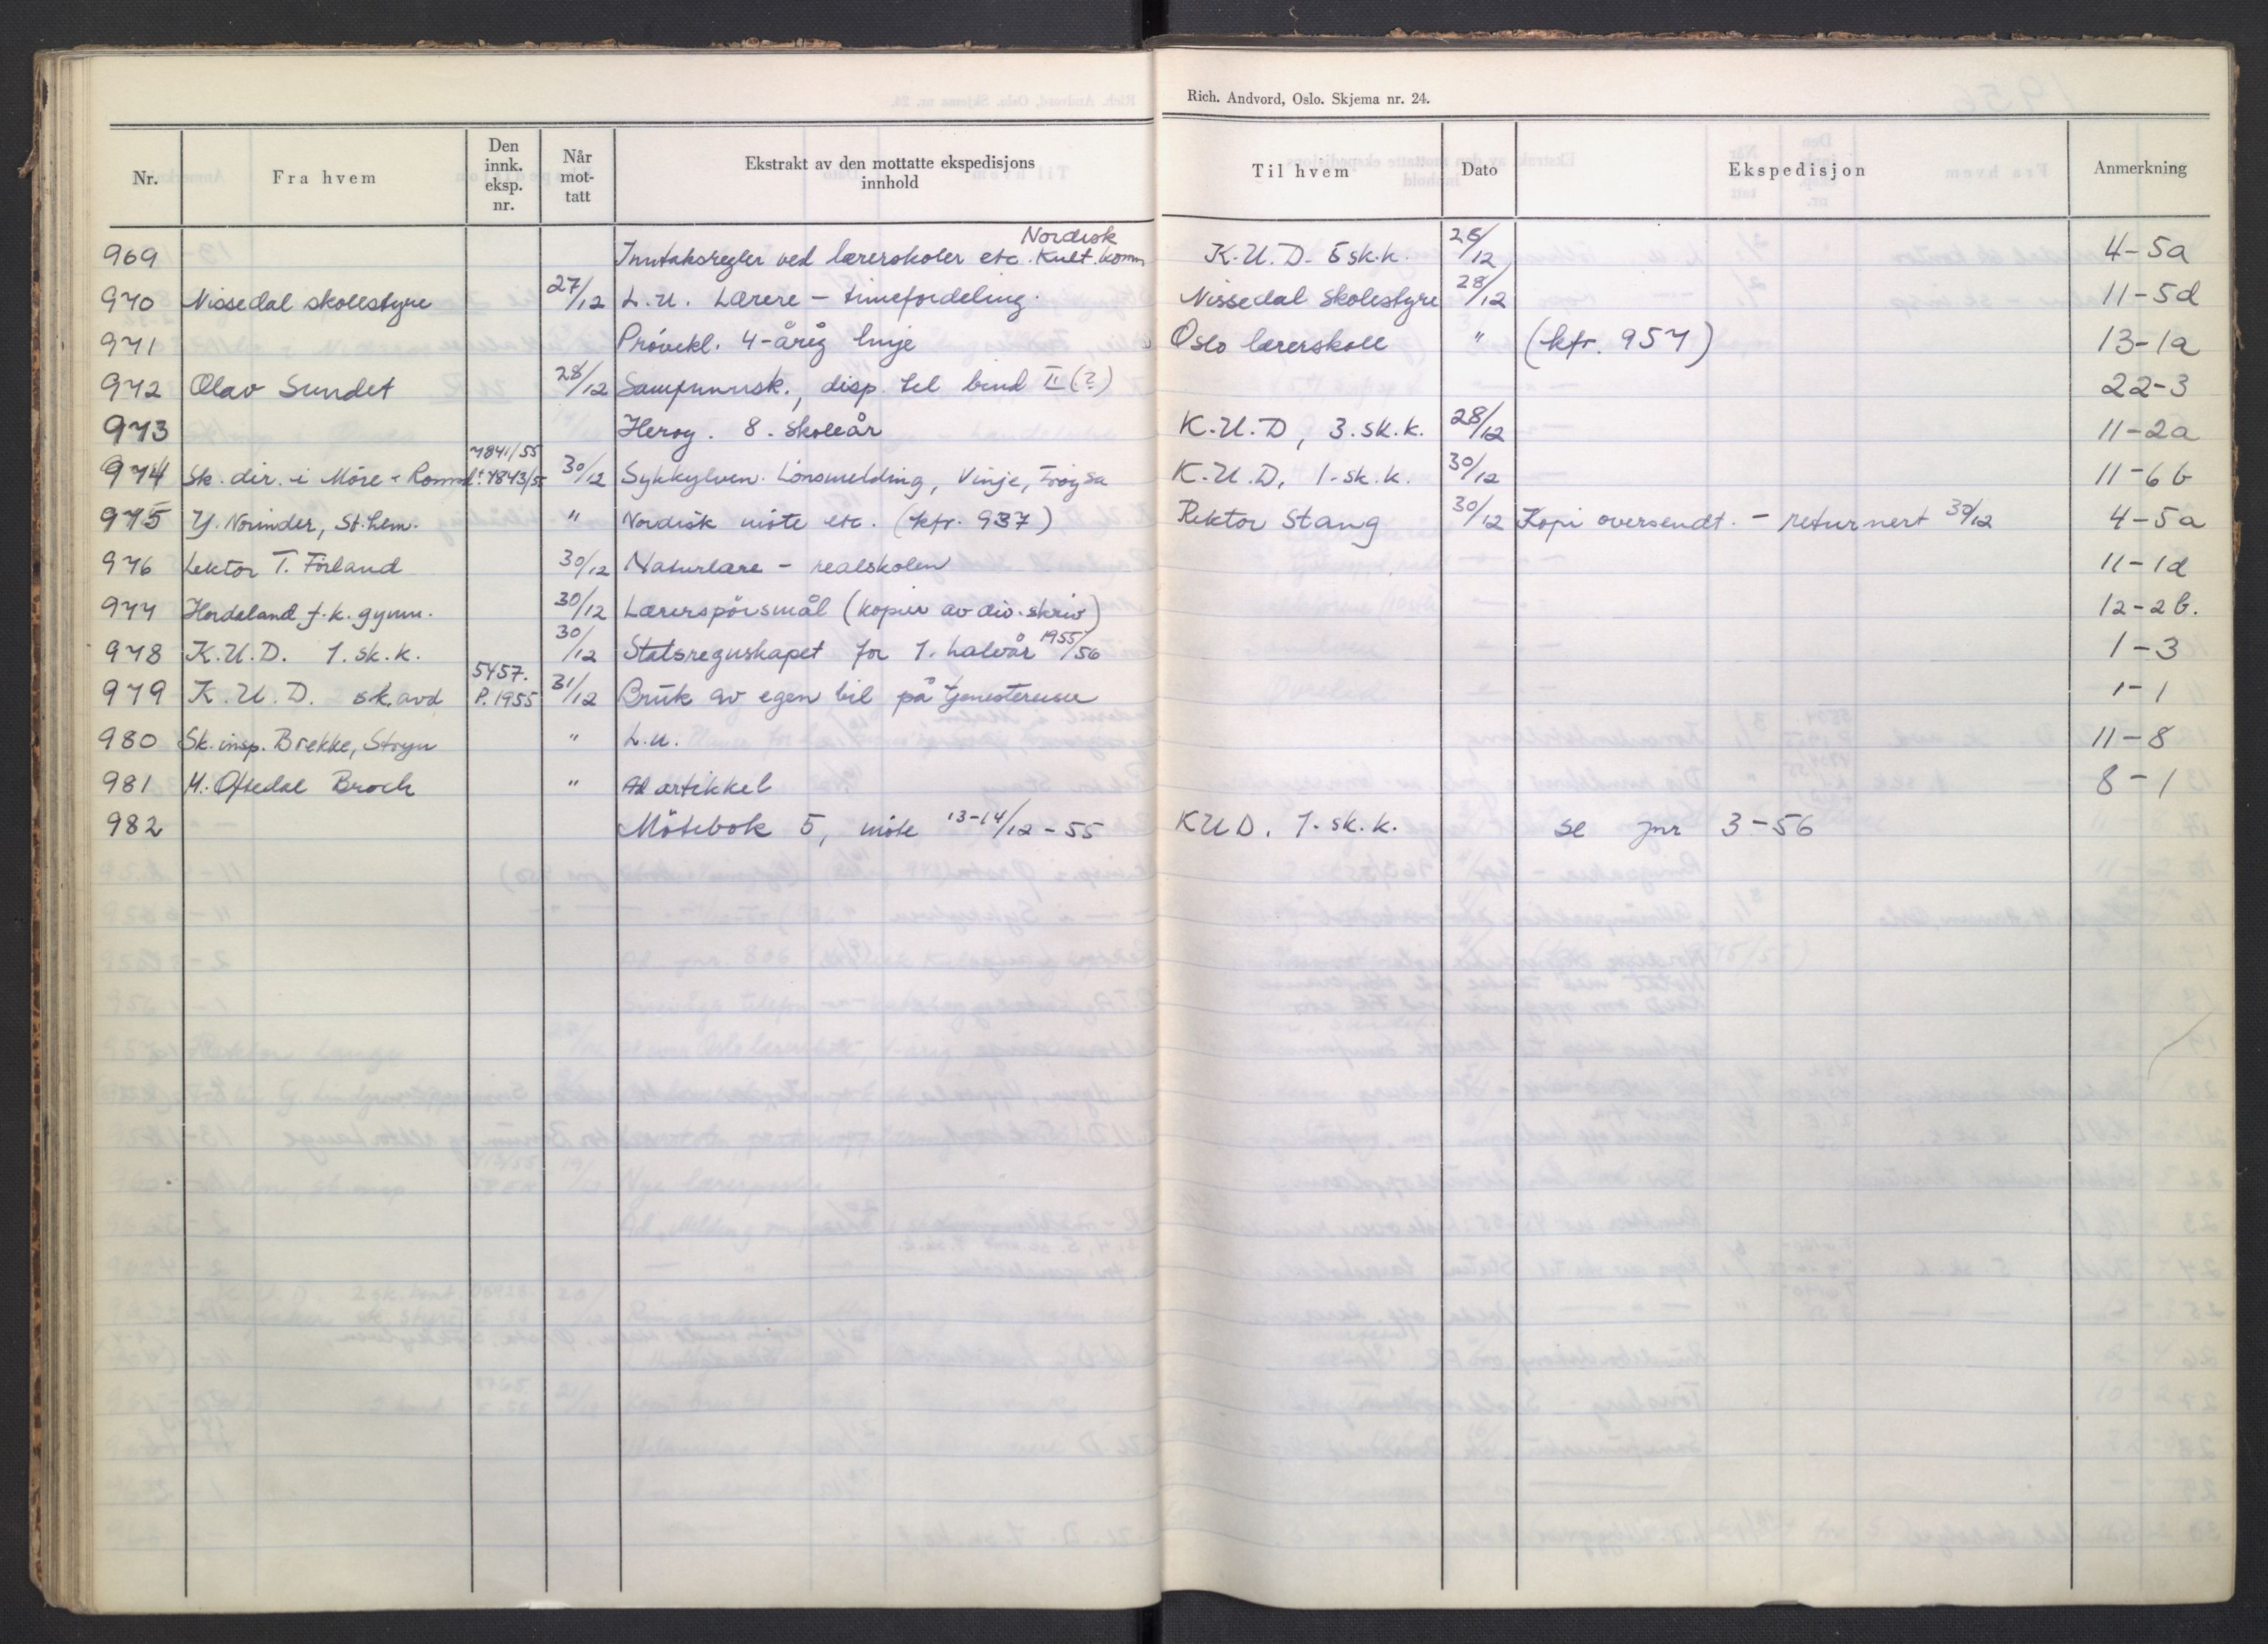 Rich. Andvord, Oslo. Skjema nr. 24.
Nr. Fra hvem Den innk. eksp. nr. Når mot- tatt Ekstrakt av den mottatte ekspedisjons innhold Til hvem Dato Ekspedisjon Anmerkning
969 Inntaksregler ved lærerskoler etc. Nordisk Kult. komm K.U.D. 5 sk.k. 28/12 4-5a
970 Nissedal skolestyre 27/12 L.u. Lærere - timefordeling. Nissedal skolestyre 28/12 11-5d
971 Prövekl. 4-årig linje Oslo lærerskole " (kfr. 957) 13-1a
972 Olav Sundet 28/12 Samfunnsk., disp. til bind II (?) 22-3
973 Herøy. 8. skoleår K.U.D, 3. sk.k. 28/12 11-2a
974 Sk.dir. i Möre + Romsd. 7841/55 + 7843/55 30/12 Sykkylven. Lönsmelding, Vinje, K.U.D, 1. sk.k. 30/12 11-6b
975 Y. Norinder, St.hlm. " Nordisk möte etc. (kfr. 937) Rektor Stang 30/12 Kopi oversendt. - returnert 30/12 4-5a
976 Lektor T. Förland 30/12 Naturlære - realskolen 11-1d
977 Hordaland f.k. gymn. 30/12 Lærerspörsmål (kopier av div. skriv) 12-2b.
978 K.U.D. 1. sk.k. 30/12 Statsregnskapet for 1. halvår 1955/56 1-3
979 K.U.D. sk.avd 5457. P. 1955 31/12 Bruk av egen bil på tjenestereiser 1-1
980 Sk.insp. Brekke, Stryn " L.u. 11-8
981 H. Oftedal Broch " Ad artikkel 8-1
982 Mötebok 5, möte 13-14/12-55 KUD. 1. sk.k. se jnr 3-56